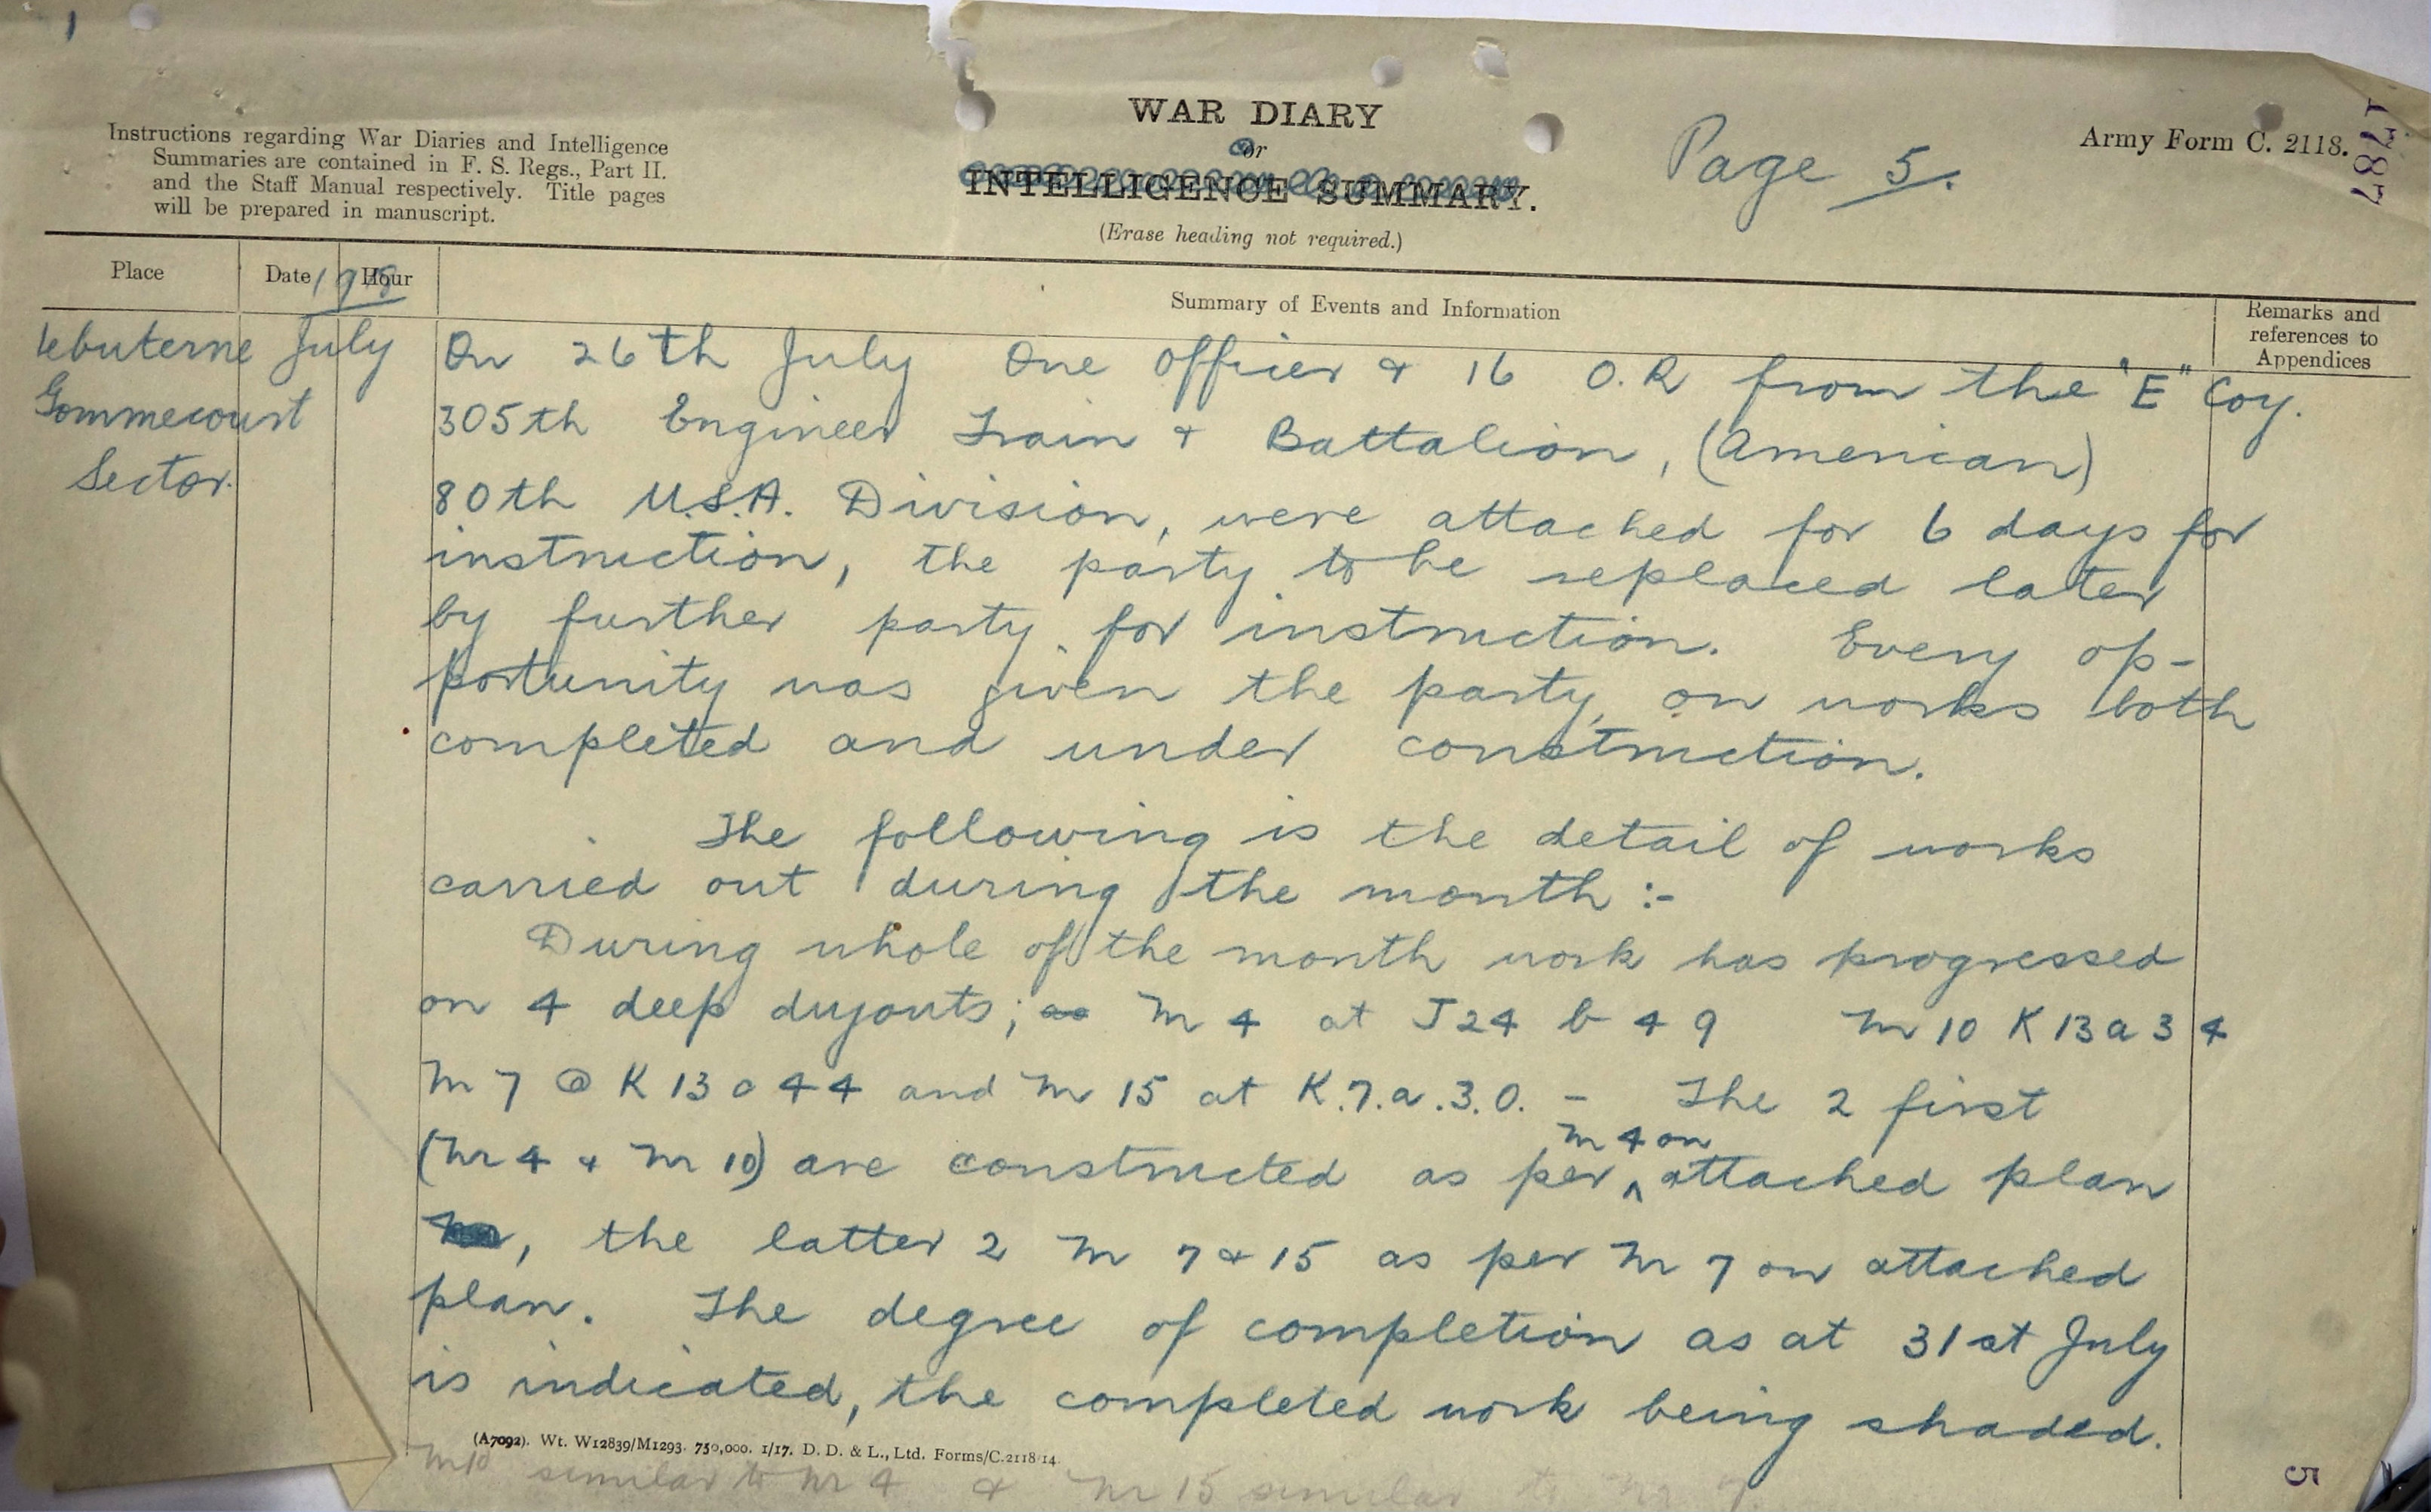 Instructions regarding War Diaries and Intelligence
Summaries are contained in F. S. Regs., Part II.
and the Staff Manual respectively. Title pages
will be prepared in manuscript.
WAR DIARY
or
INTELLIGENCE SUMMARY.
(Erase heading not required.)
Page 5.
Army Form C. 2118.
1787
Place
Date
Hour
1918
Summary of Events and Information
Remarks and
references to
Appendices
Hebuterne
Gommecourt
Sector.
July
On 26th July One officer & 16 O.R from the "E" Coy.
305th Engineer Train & Battalion, (American)
80th U.S.A. Division, were attached for 6 days for
instruction, the party to be replaced later
by further party for instruction. Every op-
portunity was given the party, on works both
completed and under construction.
The following is the detail of works
carried out during the month :-
During whole of the month work has progressed
on 4 deep dugouts; M 4 at J24 b 4 9 M 10 K 13 a 3 4
M 7 @ K 13 a 4 4 and M 15 at K.7.a.3.0. - The 2 first
(M 4 & M 10) are constructed as per M 4 on attached plan
, the latter 2 M 7 & 15 as per M 7 on attached
plan. The degree of completion as at 31st July
is indicated, the completed work being shaded.
(A7092). Wt. W12839/M1293. 750,000. 1/17. D. D. & L., Ltd. Forms/C.2118/14.
M10 similar to M 4 & M 15 similar to M 7.
5